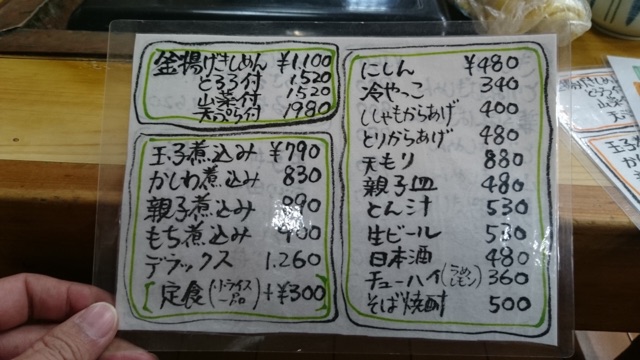 釜揚げきしめん ¥1,100
とろろ付 1,520
山菜付 1520
天ぷら付 1980
玉子煮込み ¥790
かしわ煮込み 830
親子煮込み
もち煮込み
デラックス 1,260
[定食(小ライス 一品)+¥300]
にしん ¥480
冷やっこ 340
ししゃもからあげ 400
とりからあげ 480
天もり 880
親子皿 480
とん汁 530
生ビール 530
日本酒 480
チューハイ(うめ レモン) 360
そば焼酎 500